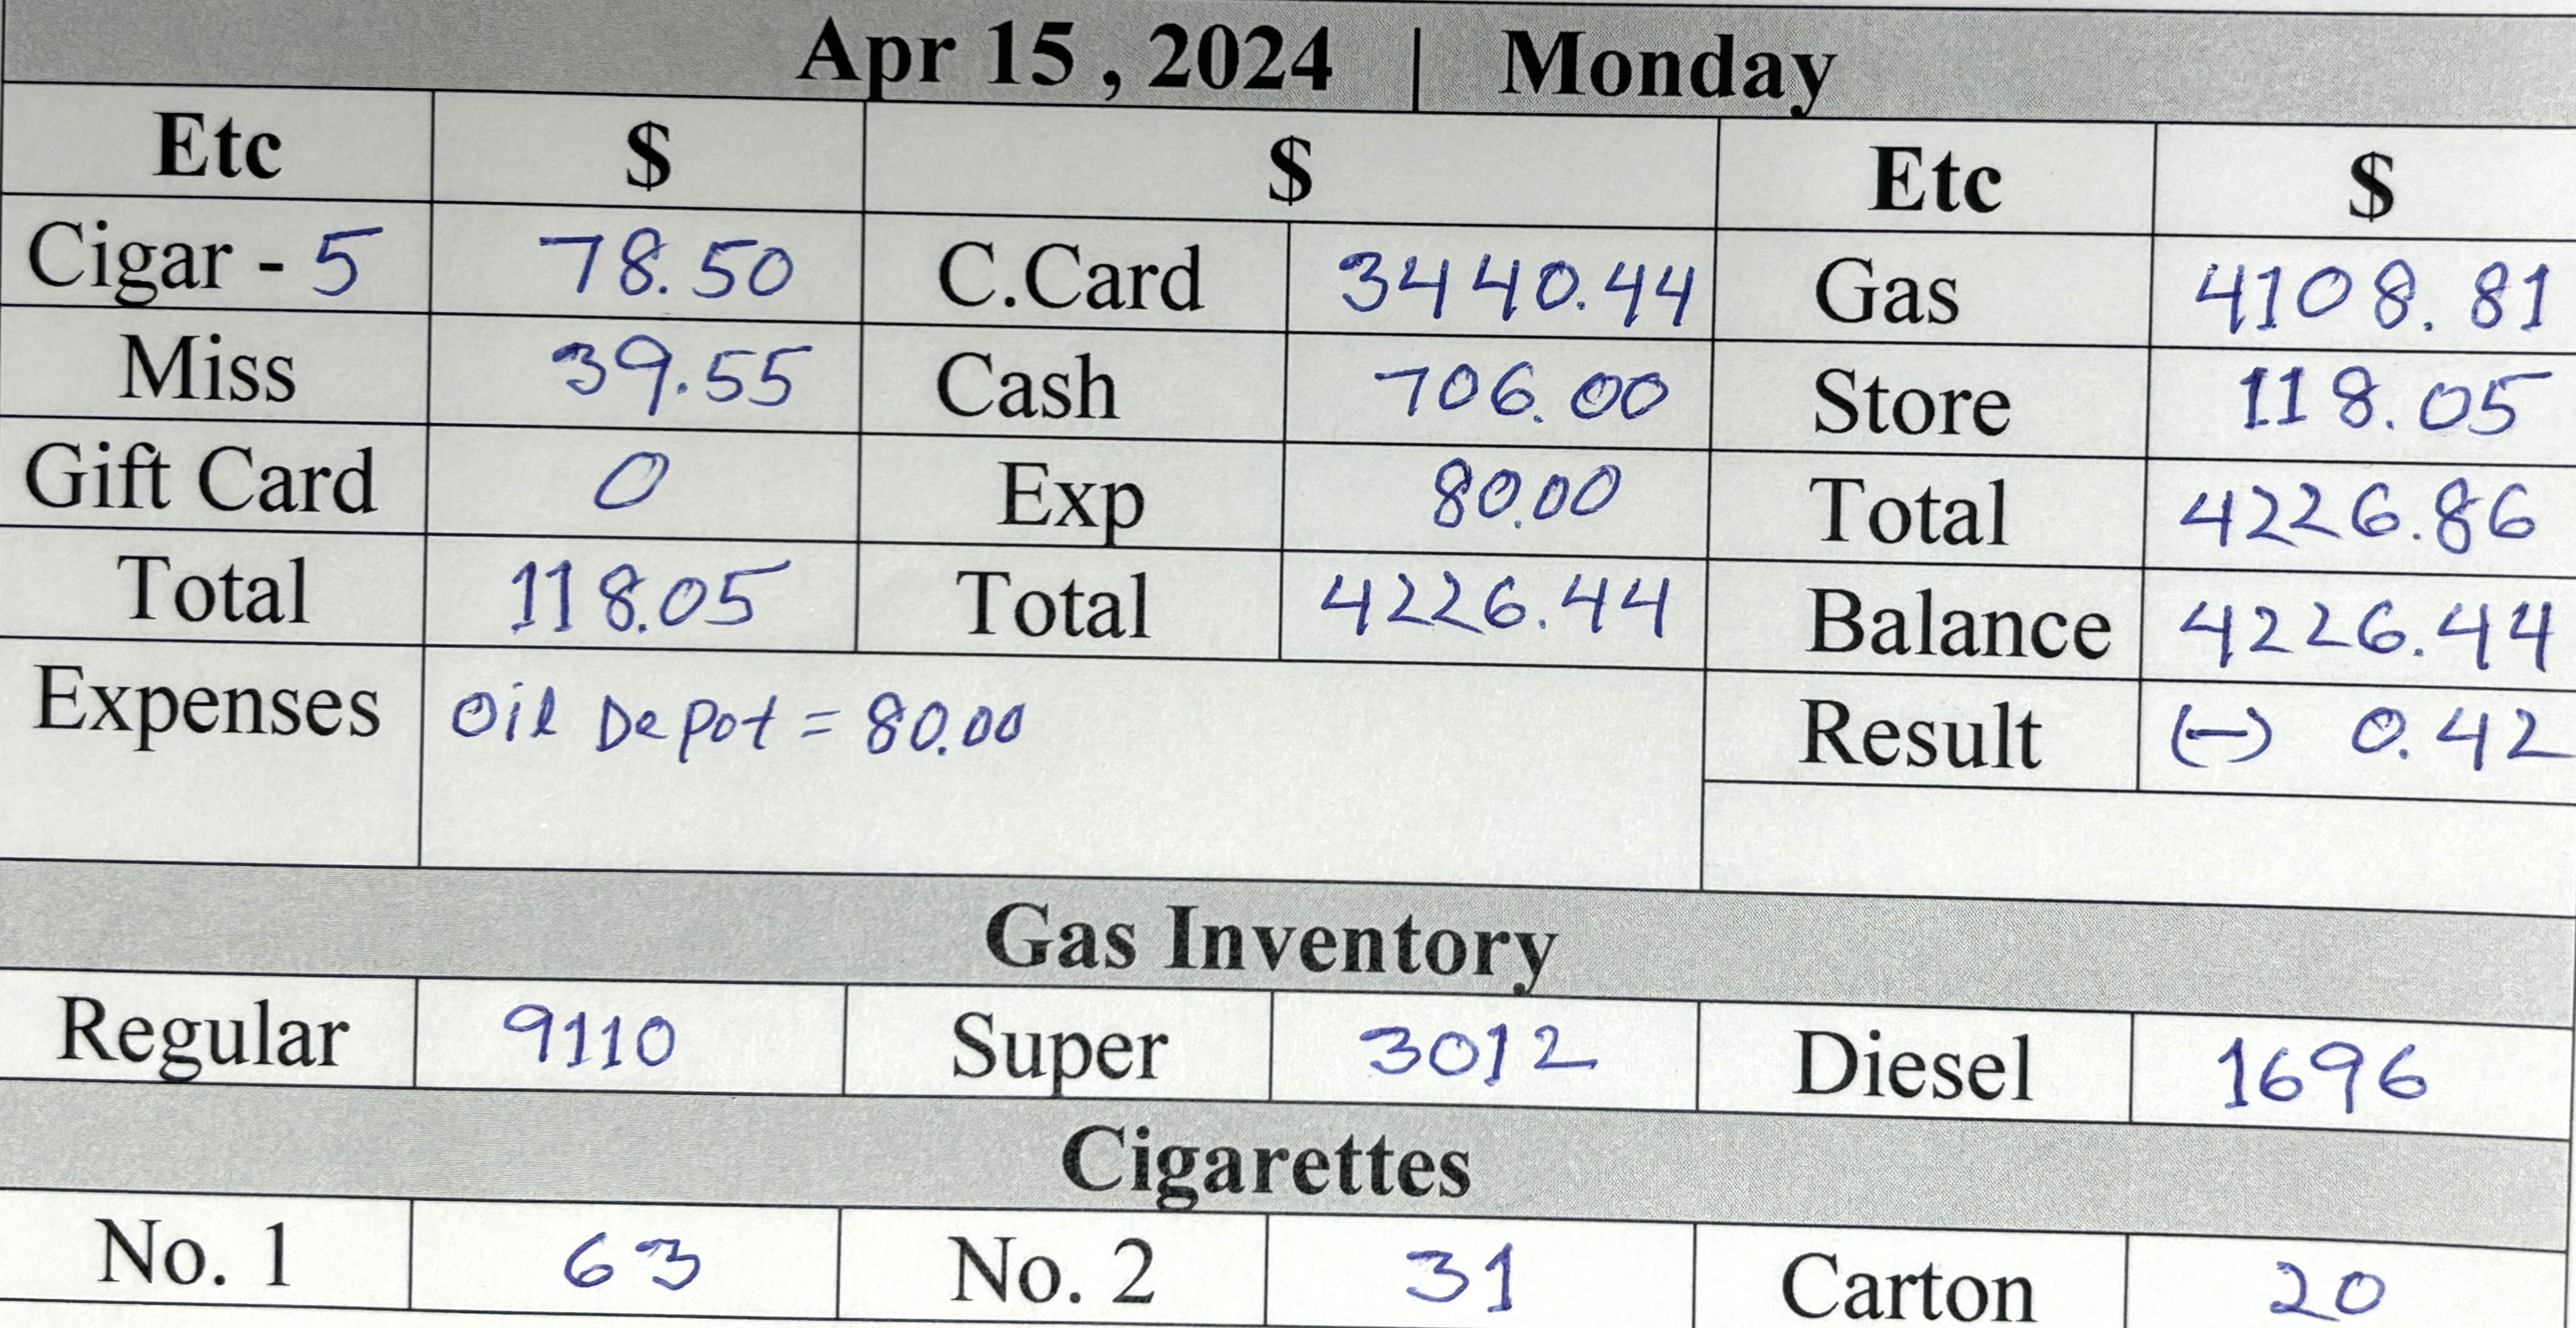 Apr 15 , 2024 | Monday
Etc $ $ Etc $
Cigar - 5 78.50 C.Card 3440.44 Gas 4108.81
Miss 39.55 Cash 706.00 Store 118.05
Gift Card 0 Exp 80.00 Total 4226.86
Total 118.05 Total 4226.44 Balance 4226.44
Expenses Oil Depot = 80.00 Result (-) 0.42
Gas Inventory
Regular 9110 Super 3012 Diesel 1696
Cigarettes
No. 1 63 No. 2 31 Carton 20